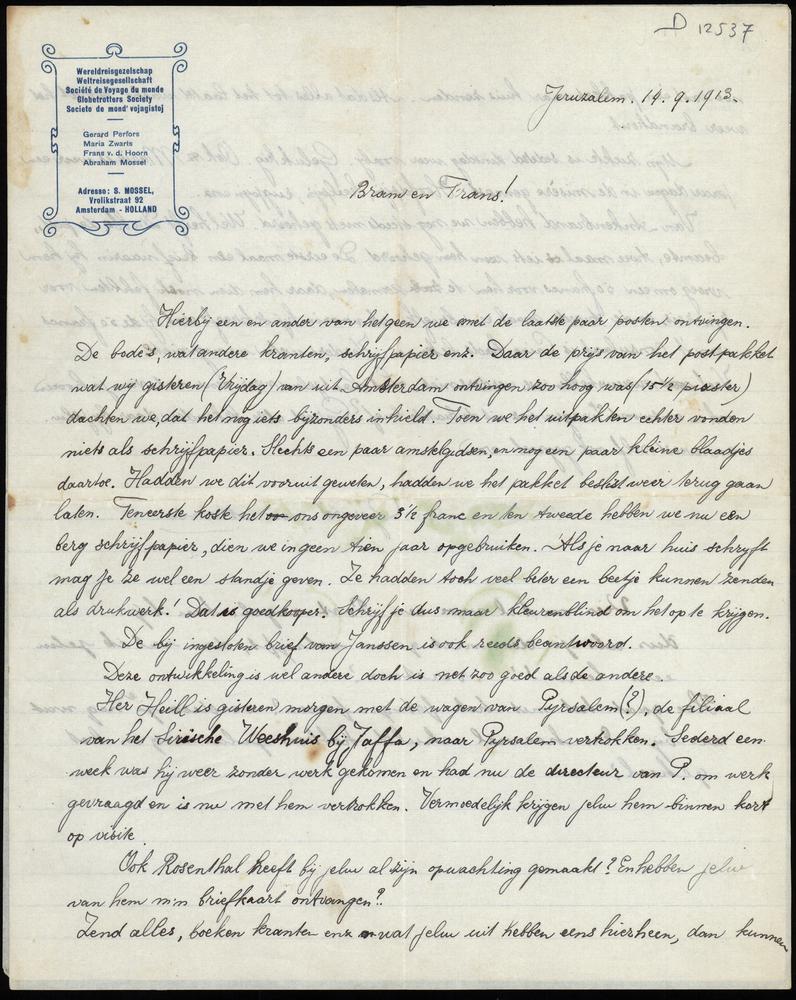 D 12537
Wereldreisgezelschap
Weltreisegesellschaft
Société de Voyage du monde
Globetrotters Society
Societo de mond' vojagistoj
Gerard Perfors
Maria Zwarts
Frans v. d. Hoorn
Abraham Mossel
Adresse: S. MOSSEL,
Vrolikstraat 92
Amsterdam - HOLLAND
Jeruzalem. 14. 9. 1913.
Bram en Frans!
Hierbij een en ander van hetgeen we met de laatste paar posten ontvingen.
De bode's, wat andere kranten, schrijfpapier enz. Daar de prijs van het postpakket
wat wij gisteren (Vrijdag) van uit Amsterdam ontvingen zoo hoog was (15½ piaster)
dachten we, dat het nog iets bijzonders inhield. Toen we het uitpakten echter vonden
niets als schrijfpapier. Slechts een paar amstelgidsen, en nog een paar kleine blaadjes
daartoe. Hadden we dit vooruit geweten, hadden we het pakket beslist weer terug gaan
laten. Teneerste koste het ons ongeveer 3½ franc en ten tweede hebben we nu een
berg schrijfpapier, dien we in geen tien jaar opgebruiken. Als je naar huis schryft
mag je ze wel een standje geven. Ze hadden toch veel beter een beetje kunnen zenden
als drukwerk! Dat is goedkooper. Schrijf je dus maar kleurenblind om het op te krijgen.
De bij ingesloten brief van Janssen is ook reeds beantwoord.
Deze ontwikkeling is wel andere doch is net zoo goed als de andere.
Her Heill is gisteren morgen met de wagen van Pyrsalem (?), de filiaal
van het Sirische Weeshuis bij Jaffa, naar Pyrsalem vertrokken. Sederd een
week was hij weer zonder werk gekomen en had nu de directeur van P. om werk
gevraagd en is nu met hem vertrokken. Vermoedelijk krijgen jelui hem binnen kort
op visite.
Ook Rosenthal heeft bij jelui al zijn opwachting gemaakt? En hebben jelui
van hem m'n briefkaart ontvangen?
Zend alles, boeken kranten enz wat jelui uit hebben eens hierheen, dan kunnen